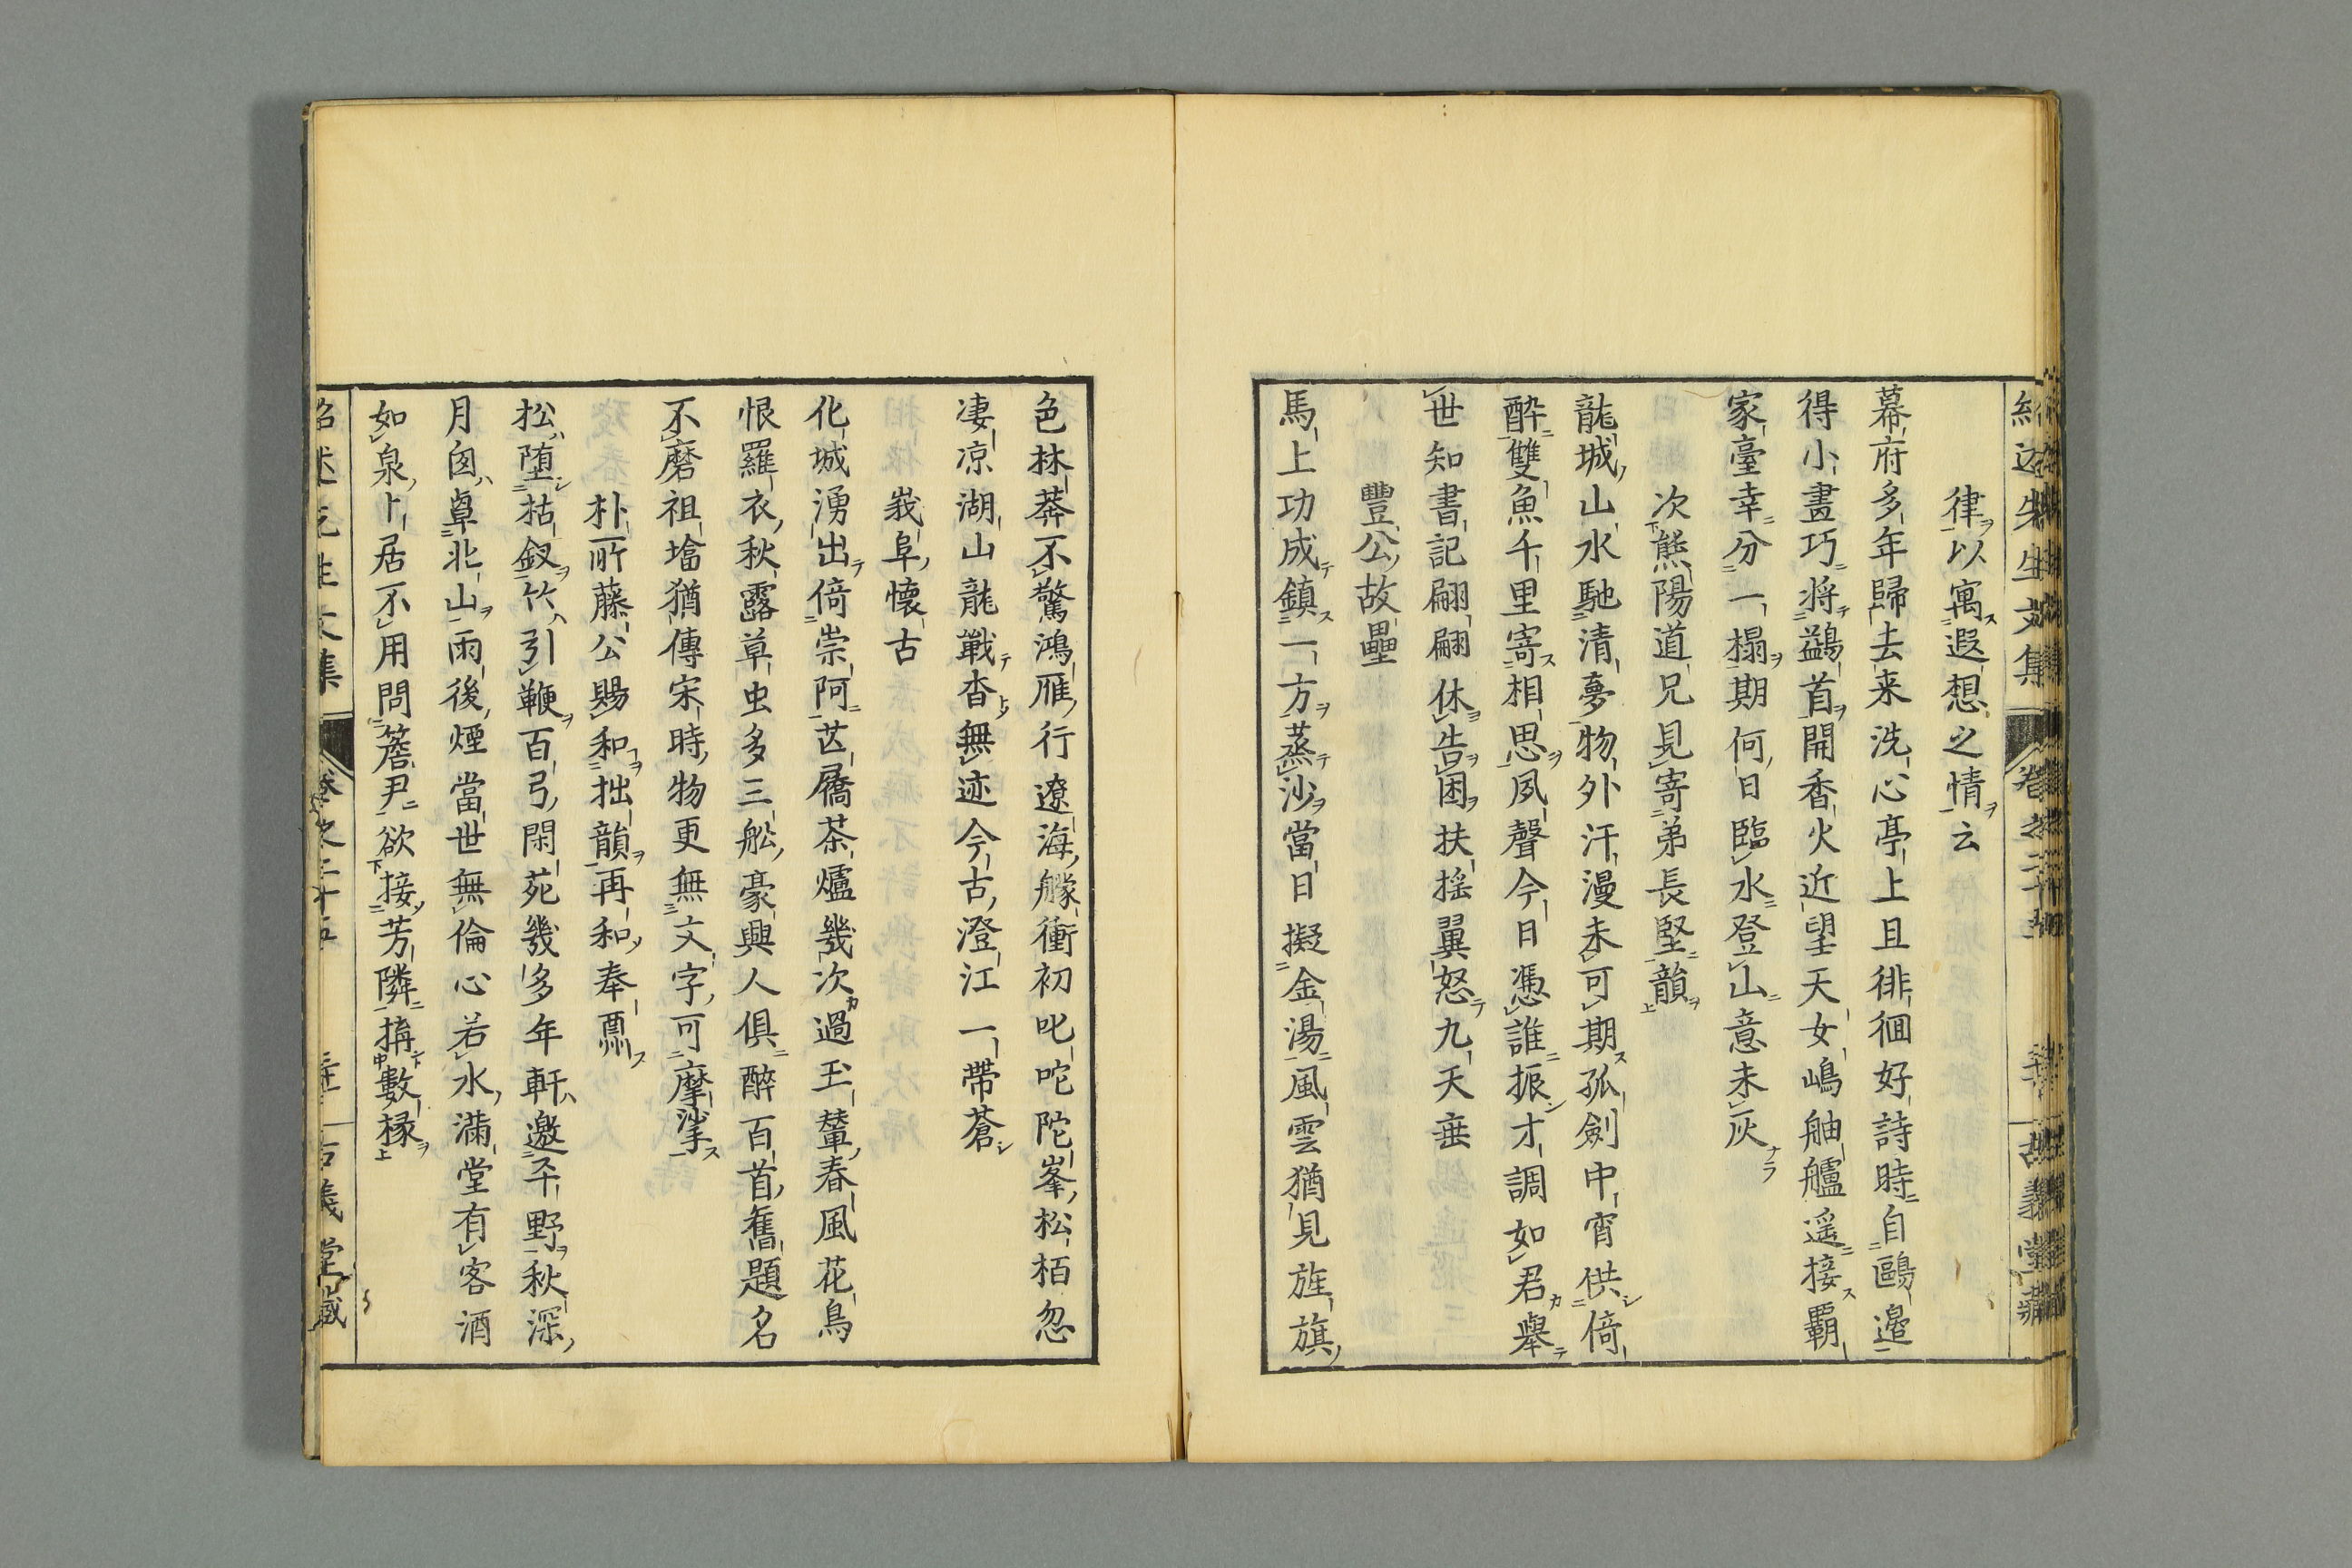 紹述先生文集 卷之二十五 古義堂藏
律以寓遐想之情云
幕府多年歸去来洗心亭上且徘徊好詩時自鷗邉
得小畫巧將鷁首開香火近望天女嶋舳艫遥接覇
家臺幸分一榻期何日臨水登山意未灰
次熊陽道兄見寄弟長堅韻
龍城山水馳清夢物外汗漫未可期孤劍中宵供倚
酔雙魚千里寄相思夙聲今日憑誰振才調如君舉
世知書記翩翩休告困扶揺翼怒九天垂
豐公故壘
馬上功成鎮一方蒸沙當日擬金湯風雲猶見旌旗
色林莽不驚鴻雁行遼海艨衝初叱咤陀峯松栢忽
凄凉湖山龍戰杳無迹今古澄江一帶蒼
峩阜懐古
化城湧出倚崇阿苾蒭茶爐幾次過玉輦春風花鳥
恨羅衣秋露草虫多三舩豪興人俱醉百首舊題名
不磨祖墖猶傳宋時物更無文字可摩挲
朴所藤公賜和拙韻再和奉酬
松堕枯釵竹引鞭百弓閑苑幾多年軒邀平野秋深
月囱卓北山雨後煙當世無倫心若水滿堂有客酒
如泉卜居不用問詹尹欲接芳隣搆數椽
紹述先生文集 卷之二十五 古義堂藏